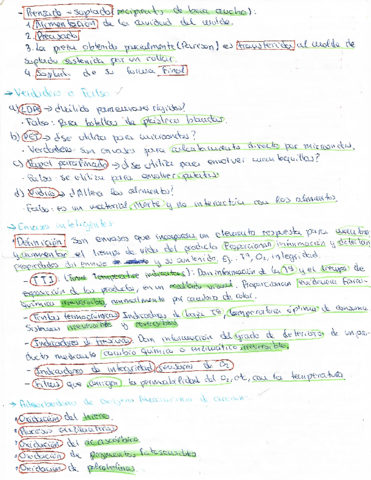 - Prensado - soplado (recipientes de boca ancha):
1. Alimentación de la cavidad del molde.
2. Prensado
3. La pieza obtenida parcialmente (Parison) es transferida al molde de
soplado sostenida por un collar.
4. Soplado de su forma final
→ Verdadero o Falso
a) LDPE → ¿Utilizado para envases rígidos?
- Falso: Para botellas de plásticos blandos.
b) PET → ¿Se utiliza para microondas?
- Verdadero: son envases para calentamiento directo por microondas.
c) Papel parafinado → ¿Se utiliza para envolver mantequillas?
- Falso: se utiliza para envolver
d) Vidrio → ¿Altera los alimentos?
Falso: es un material inerte y no interactúa con los alimentos.
→ Envases inteligentes
- Definición: Son envases que incorporan un elemento respuesta para
y aumentar el tiempo de vida del producto. Proporcionan información y detectan
propiedades del envase y su contenido. Ej: Tª, O2, integridad.
- TTI (Time temperature indicators): Dan información de la Tª y el tiempo de
exposición de los productos, en un Proporcionan
química normalmente por cambio de color.
- Tintas termocrómicas: Indicadores de baja Tª, temperatura óptima de consumo
Sistemas reversibles y
- Indicadores de frescura: Dan información del grado de deterioro de un pro-
ducto mediante cambio químico o enzimático irreversible.
- Indicadores de integridad (sensores de O2)
- Films que la permeabilidad del O2, at, con la temperatura.
→ Absorbedores de oxígeno
- Oxidación del hierro
- Proceso enzimático
- Oxidación del ac. ascórbico
- Oxidación de pigmentos fotosensibles
- Oxidación de